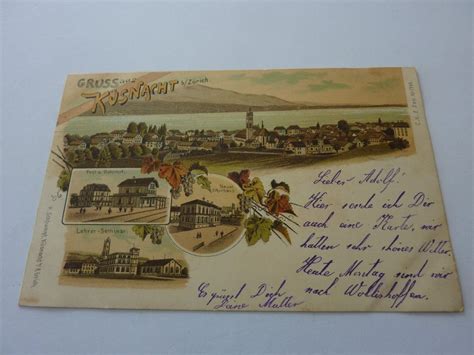 GRUSS aus
KÜSNACHT
b/Zürich
Post u. Bahnhof.
Lehrer-Seminar
Lieber Adolf!
Hier sende ich Dir
auch eine Karte, wir
hatten sehr schönes Wetter.
Heute Montag sind wir
nach Wollishoffen.
Es grüsst Dich
Deine Mutter